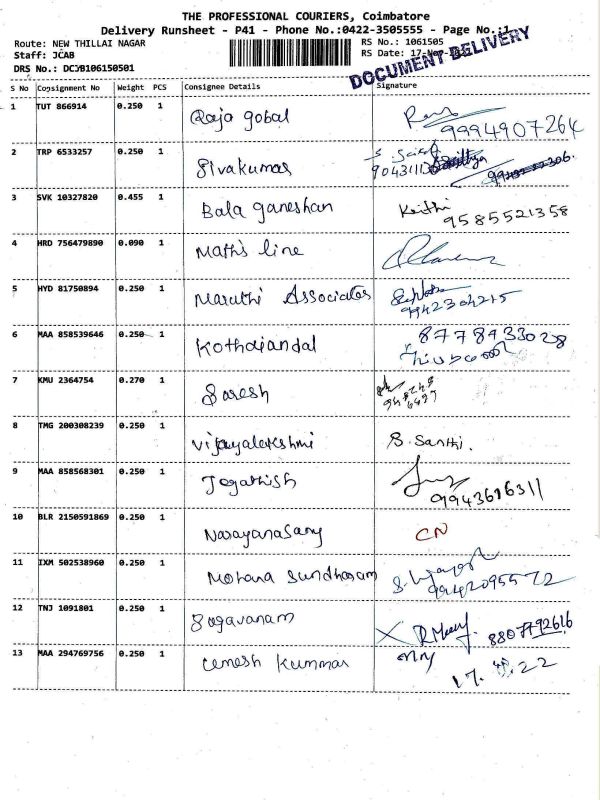 THE PROFESSIONAL COURIERS, Coimbatore
Delivery Runsheet - P41 - Phone No.:0422-3505555 - Page No.:1
Route: NEW THILLAI NAGAR RS No.: 1061505
Staff: JCAB RS Date: 17-Nov-
DRS No.: DCJB106150501
DOCUMENT DELIVERY
S No Consignment No Weight PCS Consignee Details Signature
1 TUT 866914 0.250 1 Raja gobal 9994907264
2 TRP 6533257 0.250 1 Sivakumar
3 SVK 10327820 0.455 1 Bala ganeshan Keithi 9585521358
4 HRD 756479890 0.090 1 Maths line
5 HYD 81750894 0.250 1 Maruthi Associates 9942304215
6 MAA 858539646 0.250 1 Kothaiandal 8778933028
7 KMU 2364754 0.270 1 Suresh
8 TMG 200308239 0.250 1 Vijayaletchmi S. Santhi.
9 MAA 858568301 0.250 1 Jegathish 9943616311
10 BLR 2150591869 0.250 1 Narayanasamy CN
11 IXM 502538960 0.250 1 Mohana Sundharam 9942095572
12 TNJ 1091801 0.250 1 8807792616
13 MAA 294769756 0.250 1 Kummar